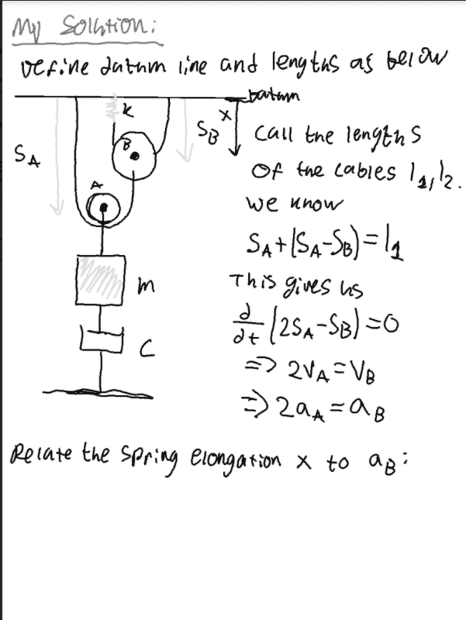 My Solution:
Define datum line and lengths as below
datum
k
x
B
S_B
S_A
A
m
C
Call the lengths
of the cables l_1, l_2.
we know
S_A+(S_A-S_B)=l_1
This gives us
∂/∂t (2S_A-S_B)=0
=> 2v_A=v_B
=> 2a_A=a_B
Relate the spring elongation x to a_B: